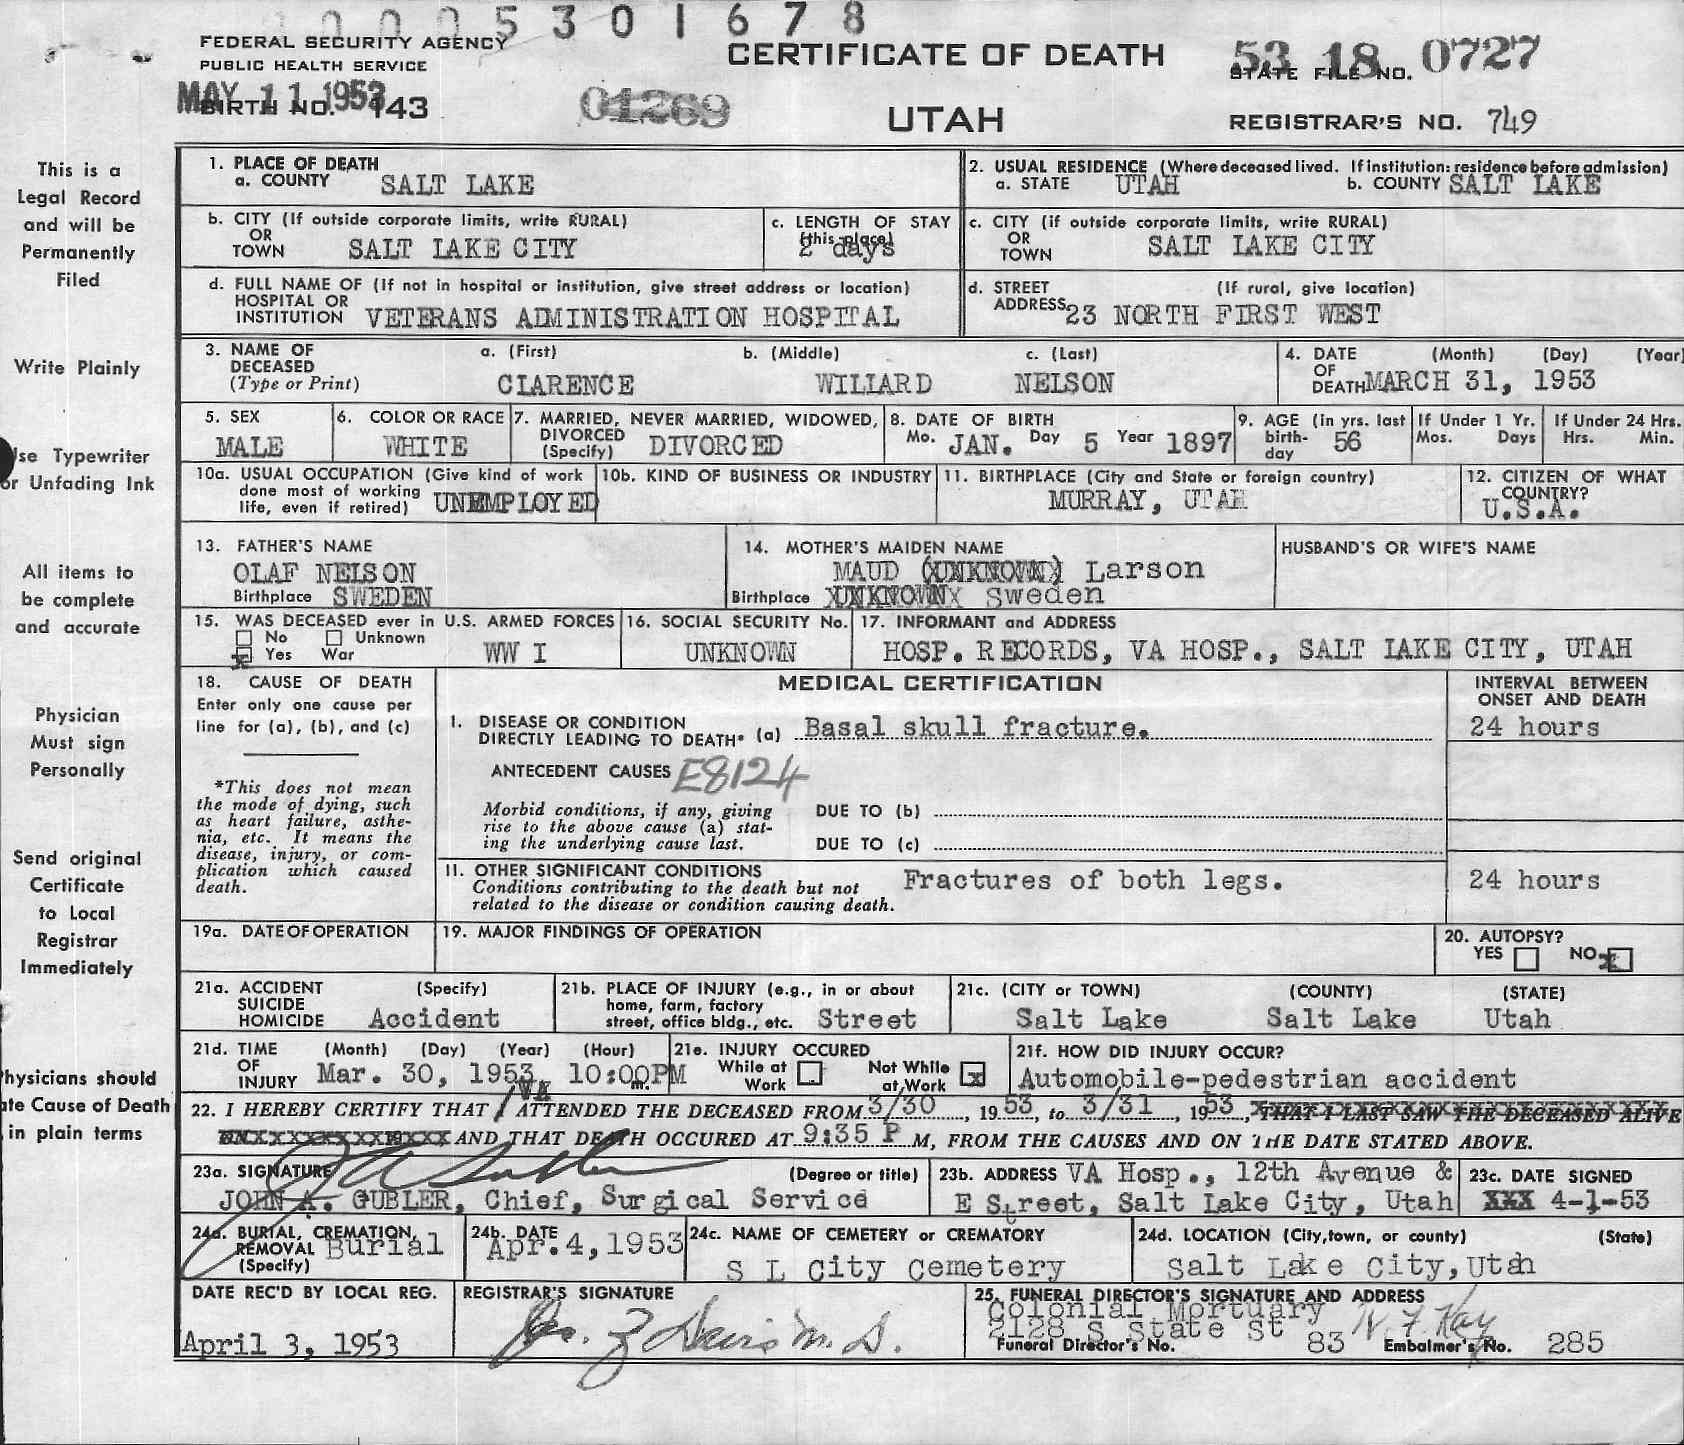 0005301678
FEDERAL SECURITY AGENCY
PUBLIC HEALTH SERVICE
CERTIFICATE OF DEATH
53 18 0727
STATE FILE NO.
MAY 11 1953
BIRTH NO. 143
01269
UTAH
REGISTRAR'S NO. 749
This is a
Legal Record
and will be
Permanently
Filed
Write Plainly
Use Typewriter
or Unfading Ink
All items to
be complete
and accurate
Physician
Must sign
Personally
Send original
Certificate
to Local
Registrar
Immediately
hysicians should
ate Cause of Death
in plain terms
1. PLACE OF DEATH
a. COUNTY SALT LAKE
2. USUAL RESIDENCE (Where deceased lived. If institution: residence before admission)
a. STATE UTAH b. COUNTY SALT LAKE
b. CITY (If outside corporate limits, write RURAL)
OR
TOWN SALT LAKE CITY
c. LENGTH OF STAY
(this place)
2 days
c. CITY (if outside corporate limits, write RURAL)
OR
TOWN SALT LAKE CITY
d. FULL NAME OF (If not in hospital or institution, give street address or location)
HOSPITAL OR
INSTITUTION VETERANS ADMINISTRATION HOSPITAL
d. STREET (If rural, give location)
ADDRESS 23 NORTH FIRST WEST
3. NAME OF a. (First) b. (Middle) c. (Last)
DECEASED
(Type or Print) CLARENCE WILLARD NELSON
4. DATE (Month) (Day) (Year)
OF
DEATH MARCH 31, 1953
5. SEX
MALE
6. COLOR OR RACE
WHITE
7. MARRIED, NEVER MARRIED, WIDOWED,
DIVORCED
(Specify) DIVORCED
8. DATE OF BIRTH
Mo. JAN. Day 5 Year 1897
9. AGE (In yrs. last
birth-
day 56
If Under 1 Yr.
Mos. Days
If Under 24 Hrs.
Hrs. Min.
10a. USUAL OCCUPATION (Give kind of work
done most of working
life, even if retired) UNEMPLOYED
10b. KIND OF BUSINESS OR INDUSTRY
11. BIRTHPLACE (City and State or foreign country)
MURRAY, UTAH
12. CITIZEN OF WHAT
COUNTRY?
U.S.A.
13. FATHER'S NAME
OLAF NELSON
Birthplace SWEDEN
14. MOTHER'S MAIDEN NAME
MAUD (UNKNOWN) Larson
Birthplace UNKNOWN Sweden
HUSBAND'S OR WIFE'S NAME
15. WAS DECEASED ever in U.S. ARMED FORCES
No Unknown
x Yes War WW I
16. SOCIAL SECURITY No.
UNKNOWN
17. INFORMANT and ADDRESS
HOSP. RECORDS, VA HOSP., SALT LAKE CITY, UTAH
18. CAUSE OF DEATH
Enter only one cause per
line for (a), (b), and (c)
*This does not mean
the mode of dying, such
as heart failure, asthe-
nia, etc. It means the
disease, injury, or com-
plication which caused
death.
MEDICAL CERTIFICATION
INTERVAL BETWEEN
ONSET AND DEATH
I. DISEASE OR CONDITION
DIRECTLY LEADING TO DEATH* (a) Basal skull fracture. 24 hours
ANTECEDENT CAUSES E8124
Morbid conditions, if any, giving
rise to the above cause (a) stat-
ing the underlying cause last.
DUE TO (b)
DUE TO (c)
II. OTHER SIGNIFICANT CONDITIONS
Conditions contributing to the death but not
related to the disease or condition causing death.
Fractures of both legs. 24 hours
19a. DATE OF OPERATION
19. MAJOR FINDINGS OF OPERATION
20. AUTOPSY?
YES NO x
21a. ACCIDENT (Specify)
SUICIDE
HOMICIDE Accident
21b. PLACE OF INJURY (e.g., in or about
home, farm, factory
street, office bldg., etc. Street
21c. (CITY or TOWN) (COUNTY) (STATE)
Salt Lake Salt Lake Utah
21d. TIME (Month) (Day) (Year) (Hour)
OF
INJURY Mar. 30, 1953 10:00PM m.
21e. INJURY OCCURED
While at
Work
Not While
at Work x
21f. HOW DID INJURY OCCUR?
Automobile-pedestrian accident
22. I HEREBY CERTIFY THAT / VA ATTENDED THE DECEASED FROM 3/30, 1953, to 3/31, 1953 THAT I LAST SAW THE DECEASED ALIVE
AND THAT DEATH OCCURED AT 9:35 P M, FROM THE CAUSES AND ON THE DATE STATED ABOVE.
23a. SIGNATURE (Degree or title)
JOHN A. GUBLER, Chief, Surgical Service
23b. ADDRESS VA Hosp., 12th Avenue &
E Street, Salt Lake City, Utah
23c. DATE SIGNED
XXX 4-1-53
24a. BURIAL, CREMATION,
REMOVAL Burial
(Specify)
24b. DATE
Apr. 4, 1953
24c. NAME OF CEMETERY or CREMATORY
S L City Cemetery
24d. LOCATION (City, town, or county) (State)
Salt Lake City, Utah
DATE REC'D BY LOCAL REG.
April 3, 1953
REGISTRAR'S SIGNATURE
25. FUNERAL DIRECTOR'S SIGNATURE AND ADDRESS
Colonial Mortuary
2128 S State St
Funeral Director's No. 83 Embalmer's No. 285